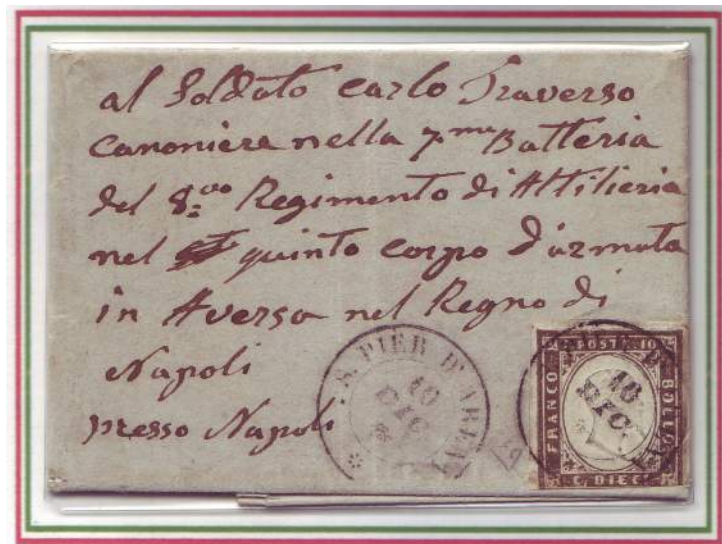 al Soldato carlo Traverso
Canoniere nella 7.ma Batteria
del 8.vo Regimento di Altilieria
nel quinto corpo d'armata
in Aversa nel Regno di
Napoli
presso Napoli
S. PIER D'ARENA
10
DIC
FRANCO
POSTALE
BOLLO
C. DIECI
10
DIC